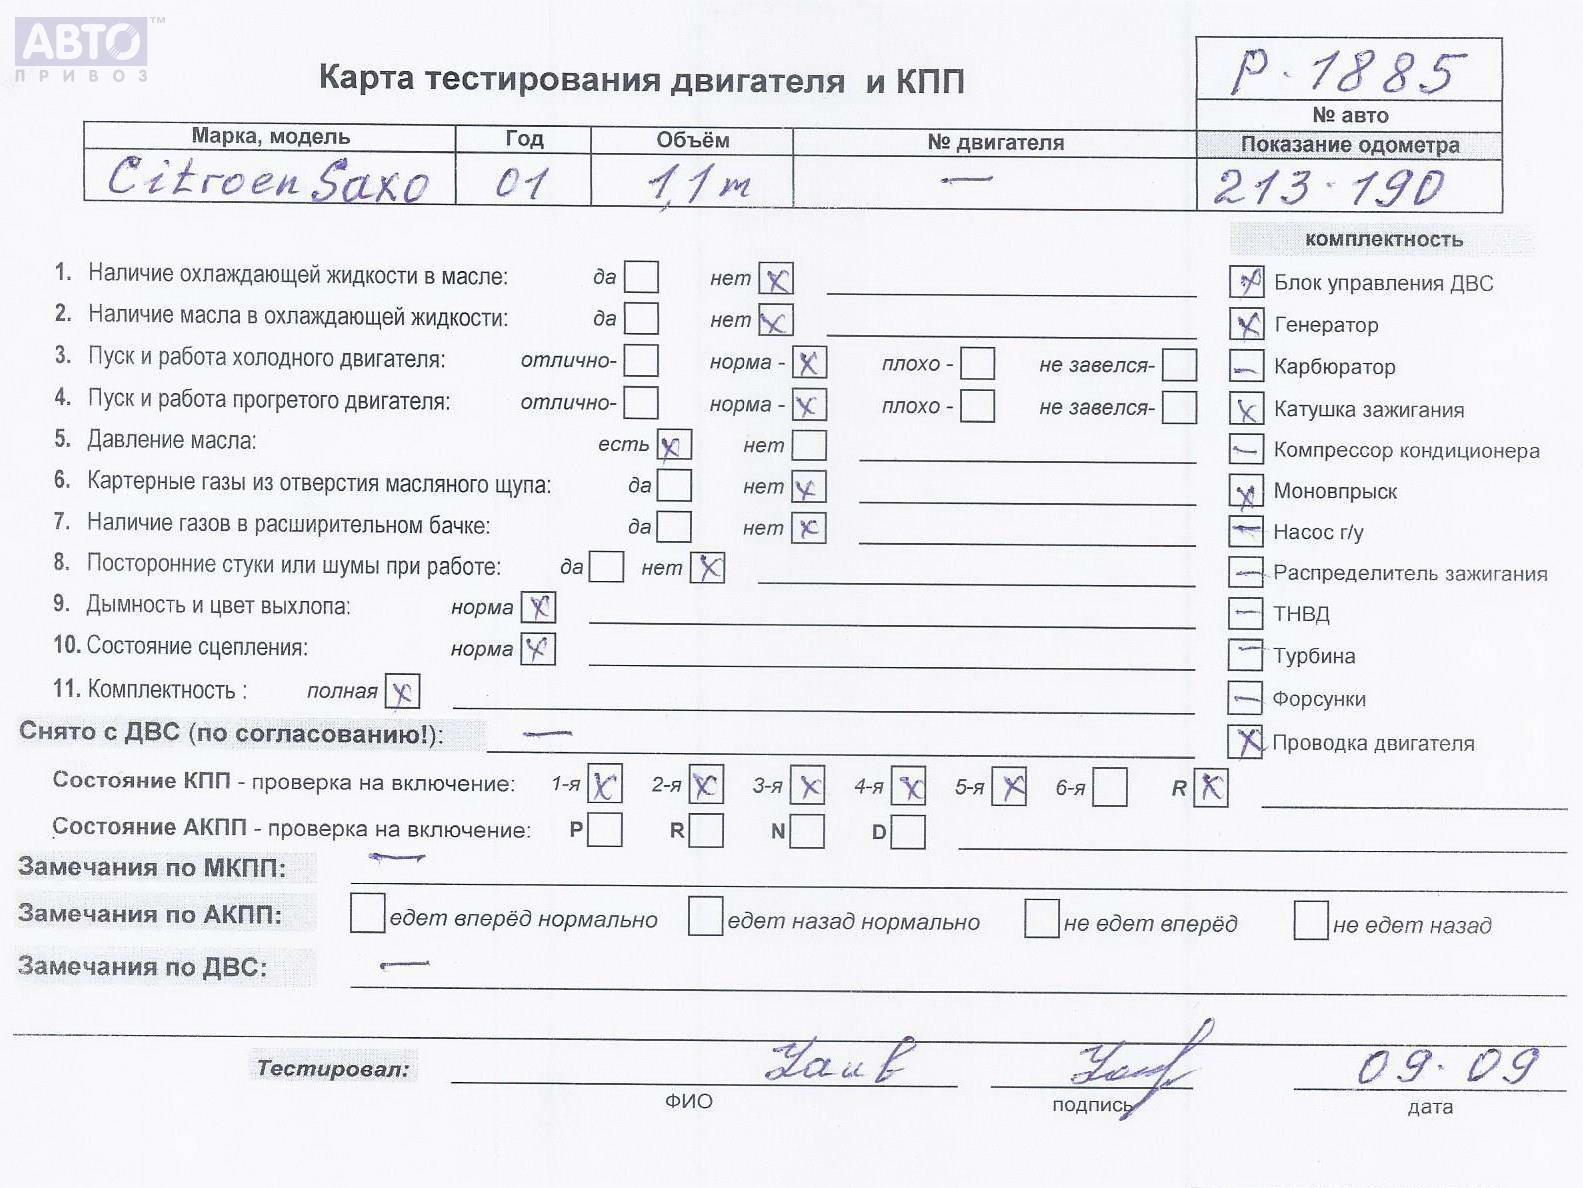 АВТО ™
ПРИВОЗ
Карта тестирования двигателя и КПП
P·1885
№ авто
Марка, модель Год Объём № двигателя Показание одометра
Citroen Saxo 01 1,1 m — 213·190
комплектность
1. Наличие охлаждающей жидкости в масле: да нет x
Блок управления ДВС x
2. Наличие масла в охлаждающей жидкости: да нет x
Генератор x
3. Пуск и работа холодного двигателя: отлично- норма - x плохо - не завелся-
Карбюратор —
4. Пуск и работа прогретого двигателя: отлично- норма - x плохо - не завелся-
Катушка зажигания x
5. Давление масла: есть x нет
Компрессор кондиционера —
6. Картерные газы из отверстия масляного щупа: да нет x
Моновпрыск x
7. Наличие газов в расширительном бачке: да нет x
Насос г/у —
8. Посторонние стуки или шумы при работе: да нет x
Распределитель зажигания —
9. Дымность и цвет выхлопа: норма x
ТНВД —
10. Состояние сцепления: норма x
Турбина —
11. Комплектность : полная x
Форсунки —
Снято с ДВС (по согласованию!): —
Проводка двигателя x
Состояние КПП - проверка на включение: 1-я x 2-я x 3-я x 4-я x 5-я x 6-я R x
Состояние АКПП - проверка на включение: P R N D
Замечания по МКПП: —
Замечания по АКПП: едет вперёд нормально едет назад нормально не едет вперёд не едет назад
Замечания по ДВС: —
Тестировал: 09·09
ФИО подпись дата